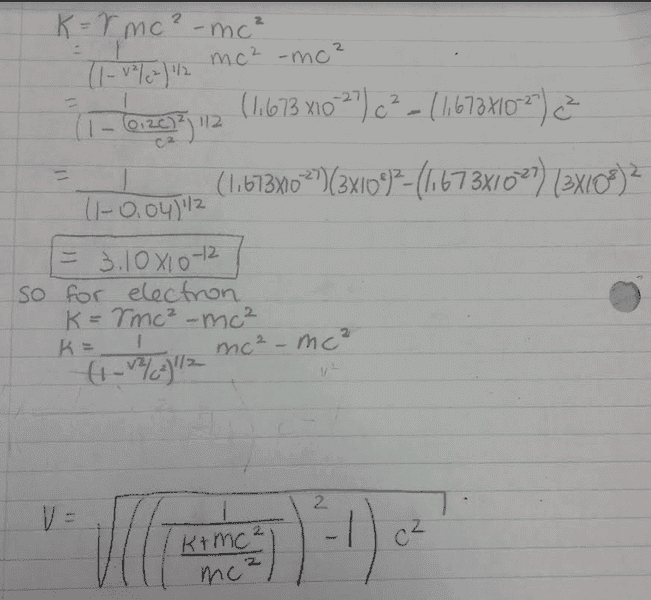 K = γmc² - mc²
= 1/(1 - v²/c²)^1/2 mc² - mc²
= 1/(1 - (0.2c)²/c²)^1/2 (1.673×10^-27)c² - (1.673×10^-27)c²
= 1/(1-0.04)^1/2 (1.673×10^-27)(3×10^8)² - (1.673×10^-27)(3×10^8)²
= 3.10×10^-12
so for electron
K = γmc² - mc²
K = 1/(1 - v²/c²)^1/2 mc² - mc²
V = √(((1/((K+mc²)/mc²))² - 1) c²)